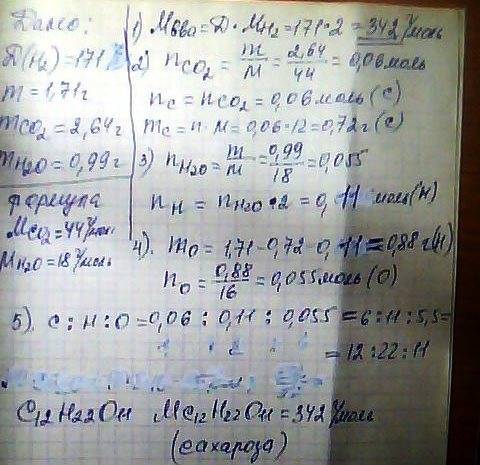 Дано:
D(H2)=171
m=1,71г
mCO2=2,64г
mH2O=0,99г
формула
MCO2=44г/моль
MH2O=18г/моль
1) Mв-ва=D·MH2=171·2=342г/моль
2) nCO2=m/M=2,64/44=0,06моль
nC=nCO2=0,06моль(C)
mC=n·M=0,06·12=0,72г(C)
3) nH2O=m/M=0,99/18=0,055
nH=nH2O·2=0,11 моль(H)
4). mO=1,71-0,72-0,11=0,88г(H)
nO=0,88/16=0,055моль(O)
5). C:H:O=0,06:0,11:0,055=6:11:5,5=
=12:22:11
C12H22O11 MC12H22O11=342г/моль
(сахароза)